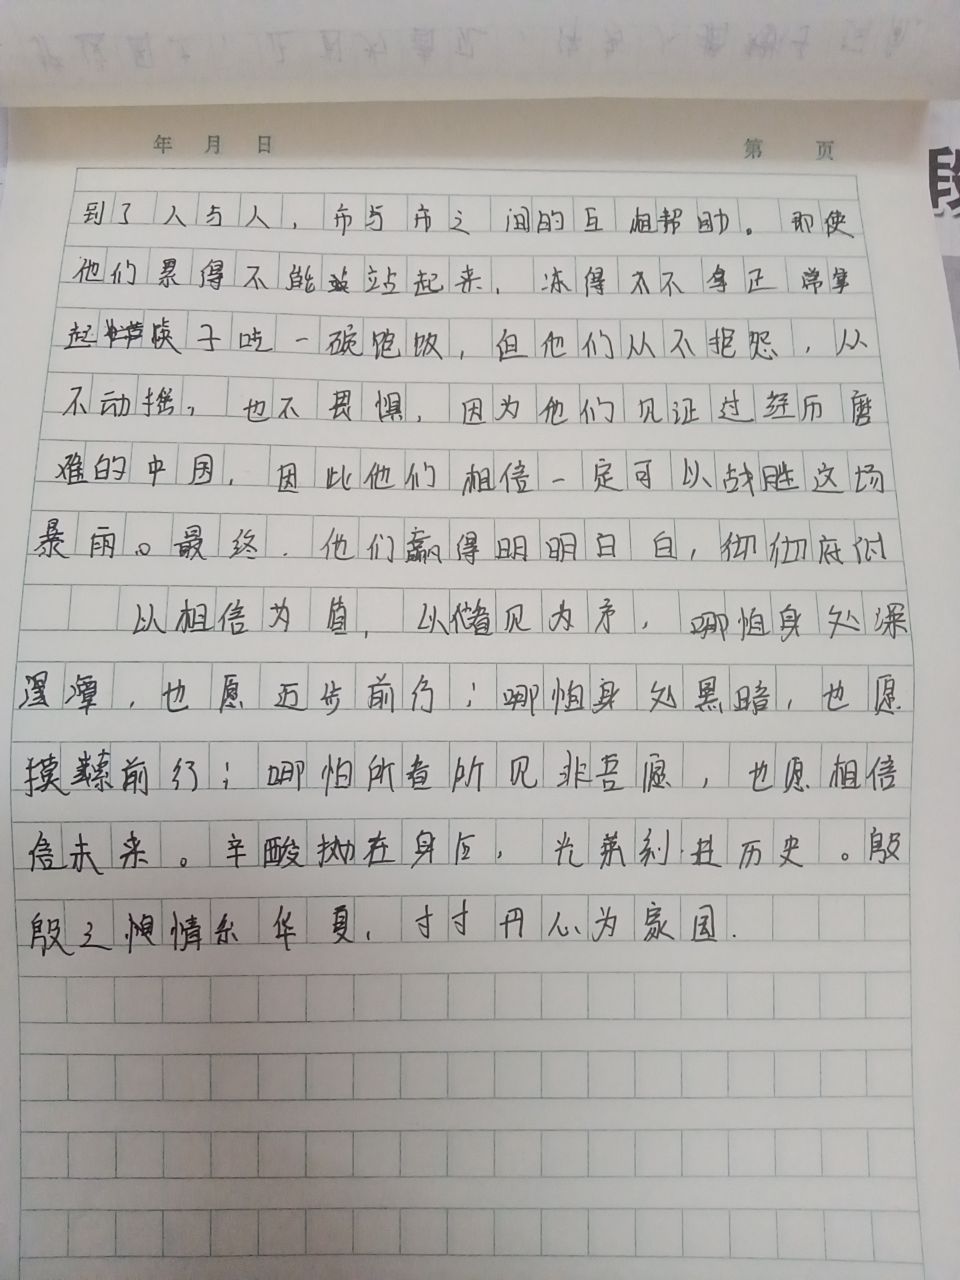 年 月 日 第 页
到了人与人，市与市之间的互相帮助。即使
他们累得不能站起来，冻得不正常拿
起筷子吃一碗饱饭，但他们从不抱怨，从
不动摇，也不畏惧，因为他们见证过经历磨
难的中国，因此他们相信一定可以战胜这场
暴雨。最终，他们赢得明明白白，彻彻底底
以相信为盾，以信見为矛，哪怕身处深
潭，也愿迈步前行；哪怕身处黑暗，也愿
摸索前行；哪怕所看所见非吾愿，也愿相信
信未来。辛酸抛在身后，光荣刻进历史。殷
殷之情系华夏，寸寸丹心为家国.
段